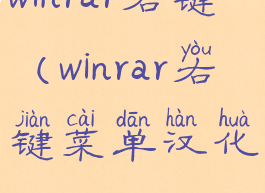 winrar右键
(winrar右
yòu
键菜单汉化
jiàn cài dān hàn huà